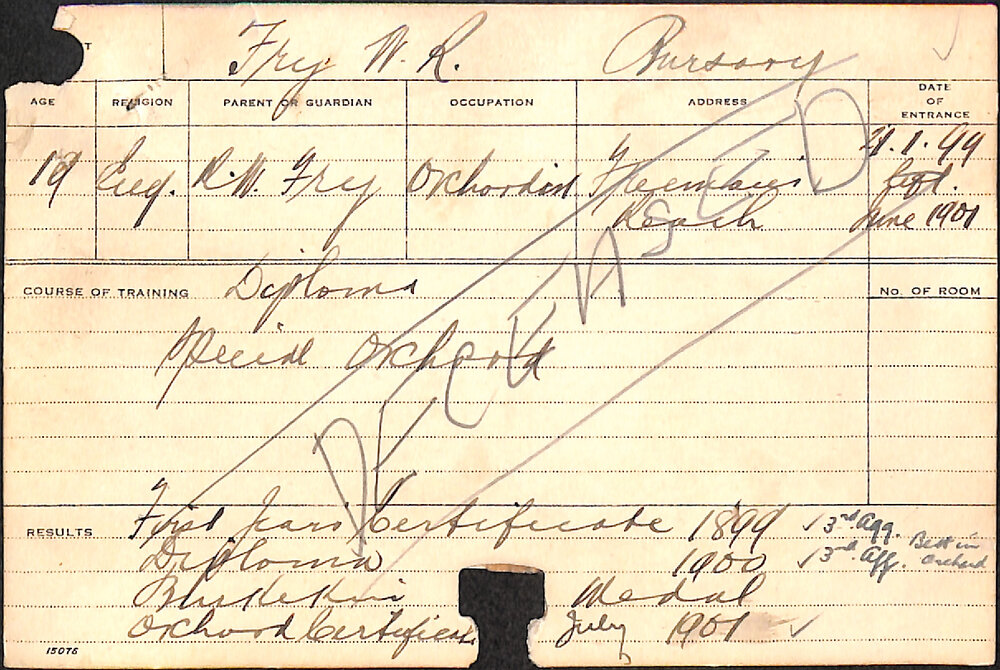 Fry. W. R. Bursary
AGE RELIGION PARENT OR GUARDIAN OCCUPATION ADDRESS DATE OF ENTRANCE
19 Eng. R. W. Fry Orchardist Freemans 21.1.99
Reach Left.
June 1901
DECEASED
COURSE OF TRAINING Diploma No. OF ROOM
Special Orchard
RESULTS First Years Certificate 1899 ✓ 3rd Agg.
Diploma 1900 ✓ 3rd Agg. Best in Orchard
Medal
Orchard Certificate July 1901 ✓
15076